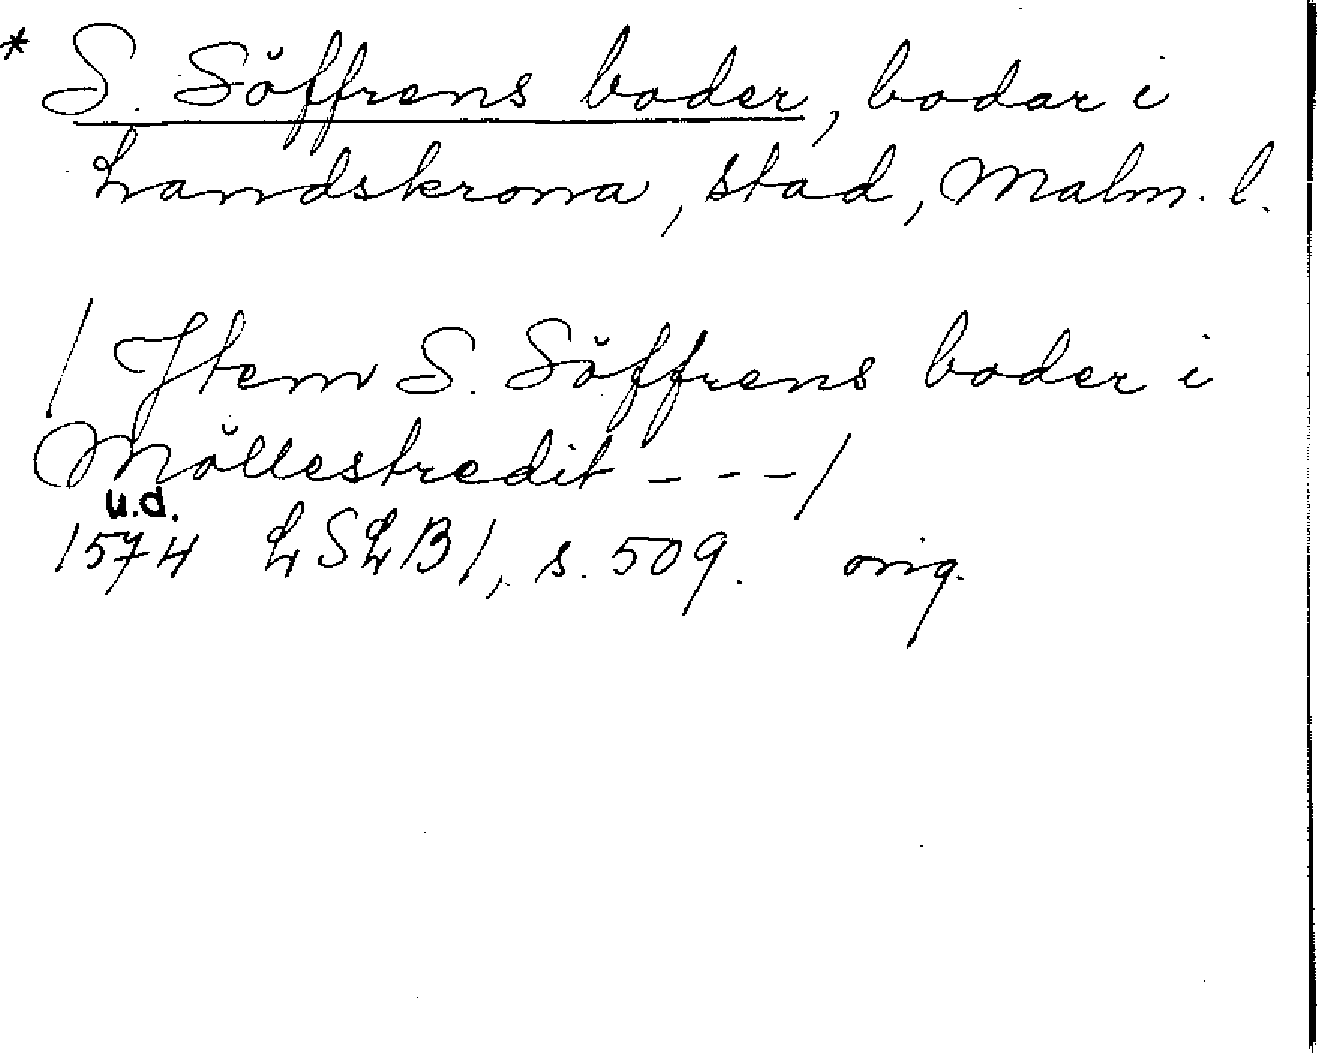 * S. Söffrens boder, bodar i
Landskrona, stad, Malm. l.
/ Jtem S. Söffrens boder i
Möllestredit - - - /
u.d.
1574 LSLB 1, s. 509. orig.